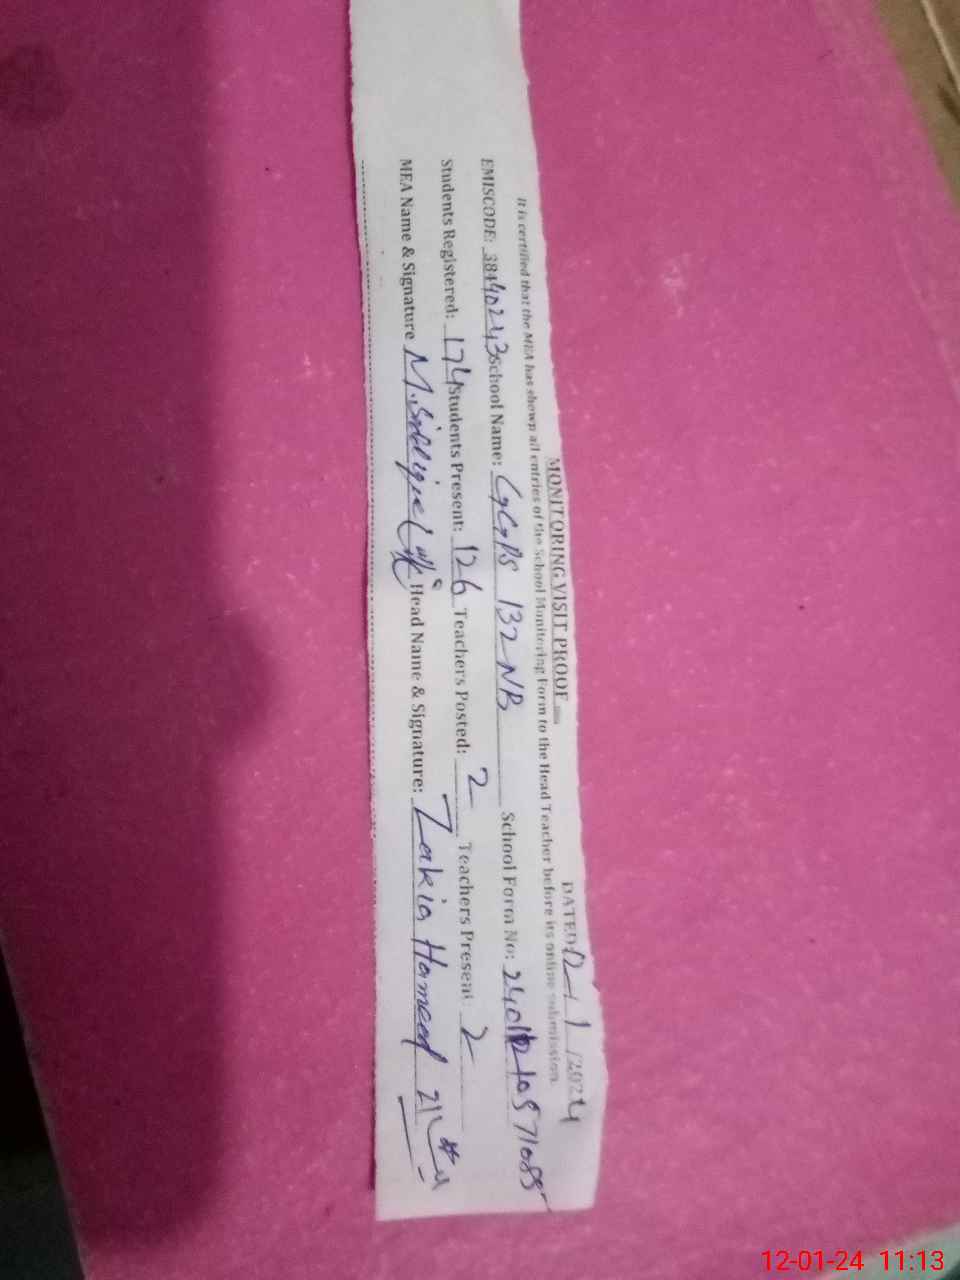 MONITORING VISIT PROOF
DATED 12-1/2024
It is certified that the MEA has shown all entries of the School Monitoring Form to the Head Teacher before its online submission.
EMISCODE: 38440243 School Name: GGPS 132NB School Form No:
Students Registered: 174 Students Present: 126 Teachers Posted: 2 Teachers Present: 2
MEA Name & Signature M. Siddique Head Name & Signature: Zakia Hameed
12-01-24 11:13